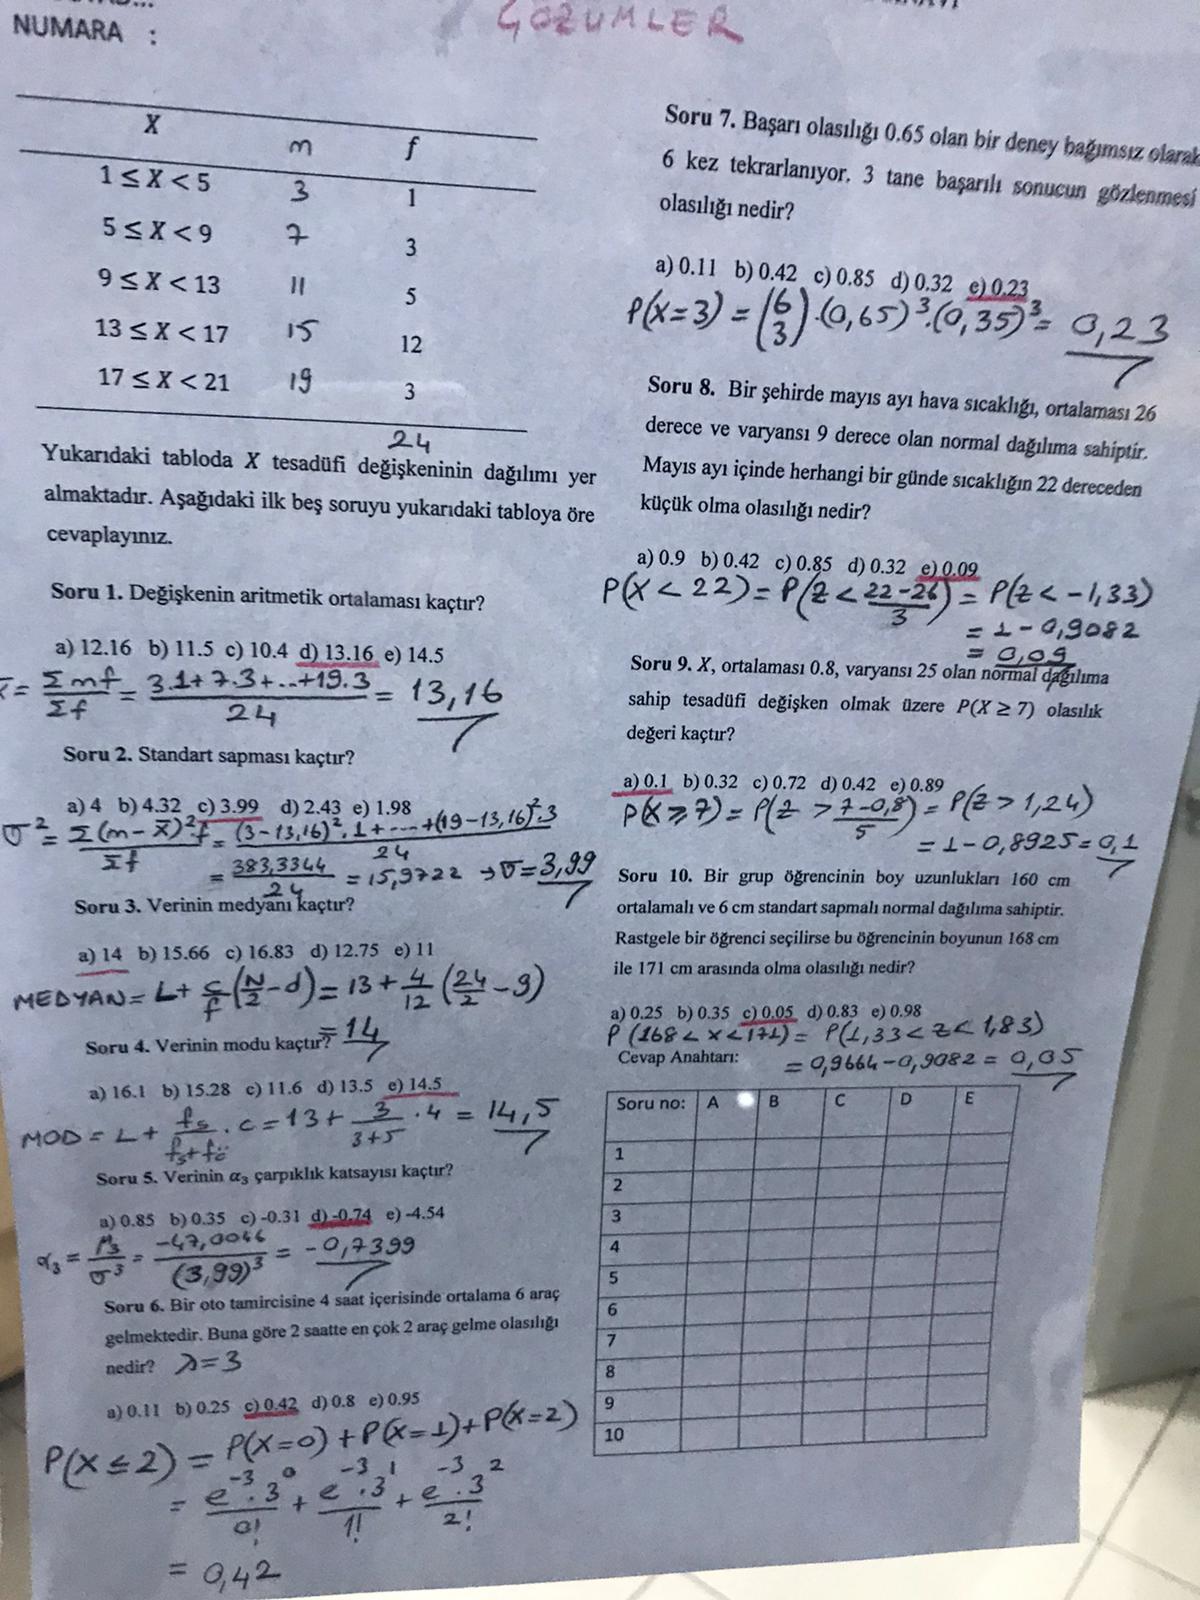 NUMARA :
ÇÖZÜMLER
X m f
1 ≤ X < 5 3 1
5 ≤ X < 9 7 3
9 ≤ X < 13 11 5
13 ≤ X < 17 15 12
17 ≤ X < 21 19 3
24
Yukarıdaki tabloda X tesadüfi değişkeninin dağılımı yer
almaktadır. Aşağıdaki ilk beş soruyu yukarıdaki tabloya öre
cevaplayınız.
Soru 1. Değişkenin aritmetik ortalaması kaçtır?
a) 12.16 b) 11.5 c) 10.4 d) 13.16 e) 14.5
x̄ = Σmf/Σf = 3.1+7.3+...+19.3/24 = 13,16
Soru 2. Standart sapması kaçtır?
a) 4 b) 4.32 c) 3.99 d) 2.43 e) 1.98
σ² = Σ(m-x̄)²f/Σf = (3-13,16)².1+....+(19-13,16)².3/24
= 383,3344/24 = 15,9722 → σ = 3,99
Soru 3. Verinin medyanı kaçtır?
a) 14 b) 15.66 c) 16.83 d) 12.75 e) 11
MEDYAN = L + c/f (N/2 - d) = 13 + 4/12 (24/2 - 9)
= 14
Soru 4. Verinin modu kaçtır?
a) 16.1 b) 15.28 c) 11.6 d) 13.5 e) 14.5
MOD = L + fs/fs+fö . c = 13 + 3/3+5 . 4 = 14,5
Soru 5. Verinin α₃ çarpıklık katsayısı kaçtır?
a) 0.85 b) 0.35 c) -0.31 d) -0.74 e) -4.54
α₃ = μ₃/σ³ = -47,0046/(3,99)³ = -0,7399
Soru 6. Bir oto tamircisine 4 saat içerisinde ortalama 6 araç
gelmektedir. Buna göre 2 saatte en çok 2 araç gelme olasılığı
nedir? λ=3
a) 0.11 b) 0.25 c) 0.42 d) 0.8 e) 0.95
P(X≤2) = P(X=0)+P(X=1)+P(X=2)
= e⁻³.3⁰/0! + e⁻³.3¹/1! + e⁻³.3²/2!
= 0,42
Soru 7. Başarı olasılığı 0.65 olan bir deney bağımsız olarak
6 kez tekrarlanıyor. 3 tane başarılı sonucun gözlenmesi
olasılığı nedir?
a) 0.11 b) 0.42 c) 0.85 d) 0.32 e) 0.23
P(X=3) = (6 3).(0,65)³.(0,35)³ = 0,23
Soru 8. Bir şehirde mayıs ayı hava sıcaklığı, ortalaması 26
derece ve varyansı 9 derece olan normal dağılıma sahiptir.
Mayıs ayı içinde herhangi bir günde sıcaklığın 22 dereceden
küçük olma olasılığı nedir?
a) 0.9 b) 0.42 c) 0.85 d) 0.32 e) 0.09
P(X < 22) = P(Z < 22-26/3) = P(Z < -1,33)
= 1 - 0,9082
= 0,09
Soru 9. X, ortalaması 0.8, varyansı 25 olan normal dağılıma
sahip tesadüfi değişken olmak üzere P(X ≥ 7) olasılık
değeri kaçtır?
a) 0.1 b) 0.32 c) 0.72 d) 0.42 e) 0.89
P(X≥7) = P(Z > 7-0,8/5) = P(Z > 1,24)
= 1-0,8925 = 0,1
Soru 10. Bir grup öğrencinin boy uzunlukları 160 cm
ortalamalı ve 6 cm standart sapmalı normal dağılıma sahiptir.
Rastgele bir öğrenci seçilirse bu öğrencinin boyunun 168 cm
ile 171 cm arasında olma olasılığı nedir?
a) 0.25 b) 0.35 c) 0.05 d) 0.83 e) 0.98
P(168 < X < 171) = P(1,33 < Z < 1,83)
= 0,9664-0,9082 = 0,05
Cevap Anahtarı:
Soru no: A B C D E
1
2
3
4
5
6
7
8
9
10